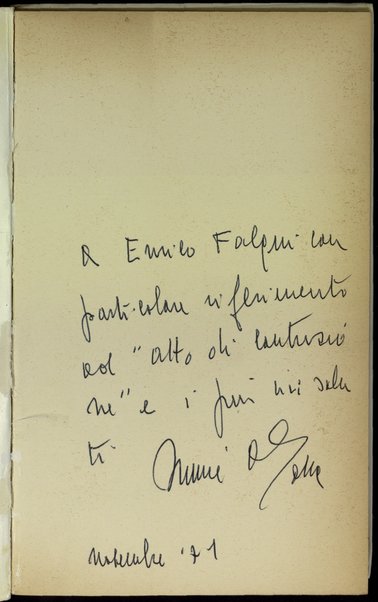 A Enrico Falqui con
particolare riferimento
ad "atto di contrizio
ne" e i più vivi salu
ti
novembre '71